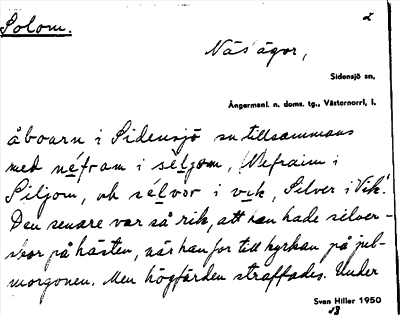 Solom.
2
Näs ägor,
Sidensjö sn,
Ångermanl. n. doms. tg., Västernorrl. l.
åboarn i Sidensjö sn tillsammans
med néfram i sélgom, Nefraim i
Siljom, ok sélvər i vik, Silver i Vik.
Den senare var så rik, att han hade silver-
skor på hästen, när han for till kyrkan på jul-
morgonen. Men högfärden straffades. Under
Sven Hiller 1950